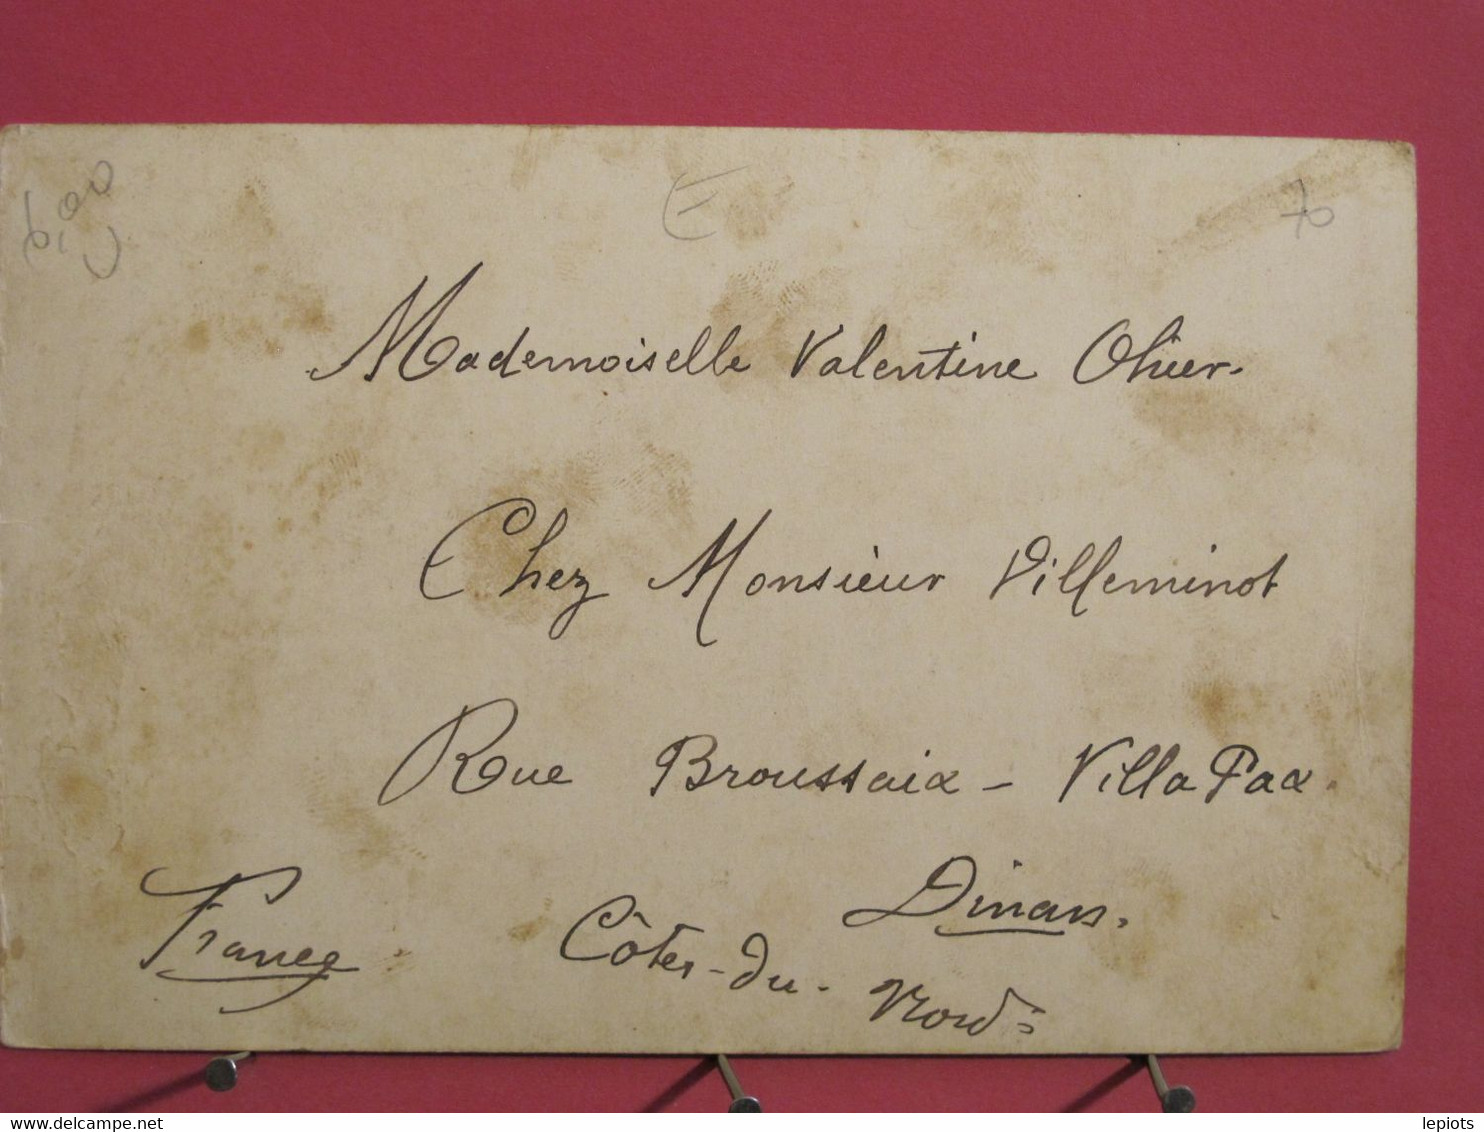 6,00
E
70
Mademoiselle Valentine Ohier.
Chez Monsieur Villeminot
Rue Broussaix - Villa Pax.
Dinan.
France
Côtes-du-Nord
lepiots